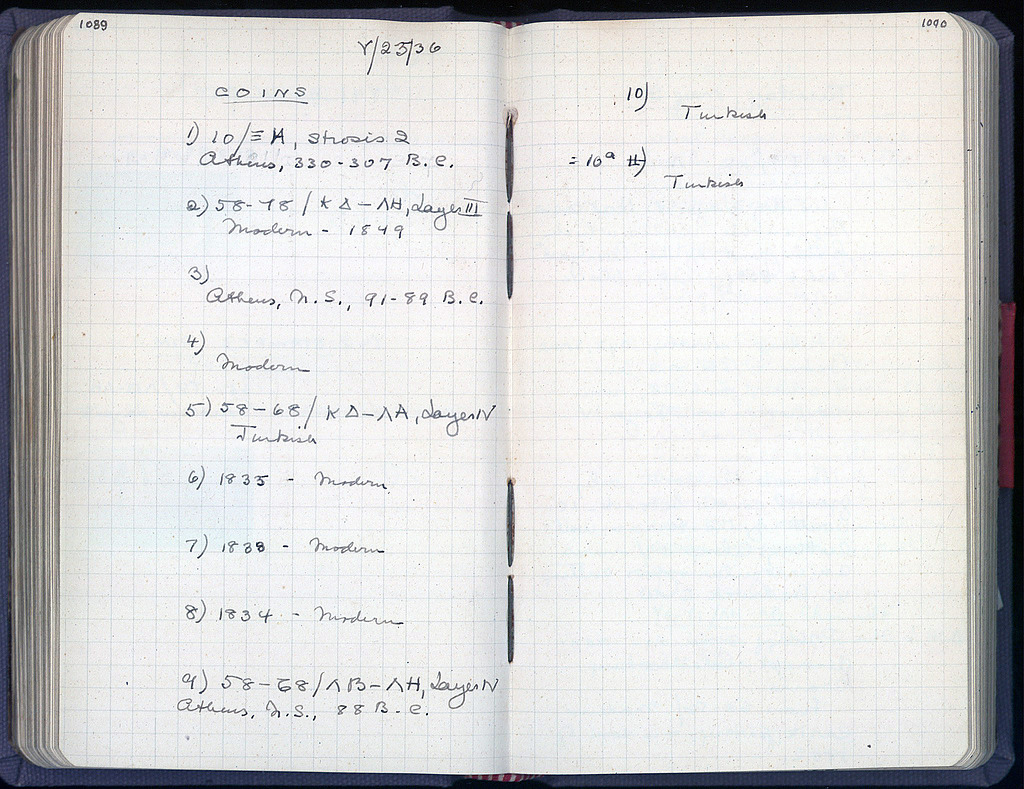 1089
V/23/36
COINS
1) 10/ΞΗ, Strosis 2
Athens, 330-307 B.C.
2) 58-78/ΚΔ-ΛΗ, Layer III
Modern - 1849
3)
Athens, N.S., 91-89 B.C.
4)
Modern
5) 58-68/ΚΔ-ΛΑ, Layer IV
Turkish
6) 1835 - Modern
7) 1838 - Modern
8) 1834 - Modern
9) 58-68/ΛΒ-ΛΗ, Layer IV
Athens, N.S., 88 B.C.
1090
10)
Turkish
= 10a 11)
Turkish